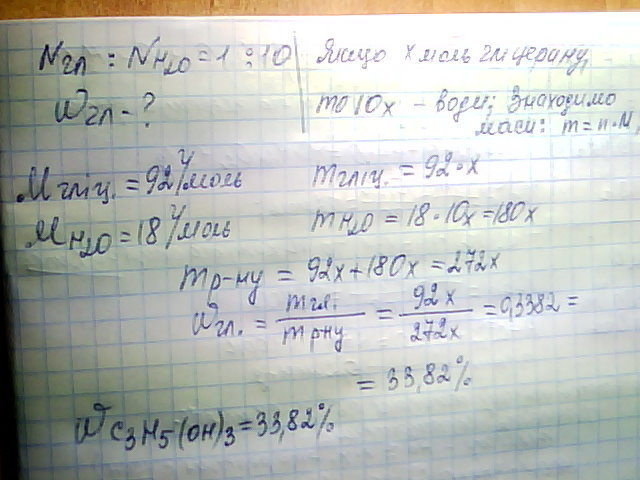 Nгл : NH₂O = 1 : 10
Wгл - ?
Якщо x моль гліцерину,
то 10x - води; Знаходимо
маси: m = n·M
Mгліц. = 92 г/моль
mгліц. = 92·x
MH₂O = 18 г/моль
mH₂O = 18·10x = 180x
mр-ну = 92x + 180x = 272x
Wгл. = mгл. / mр-ну = 92x / 272x = 0,3382 =
= 33,82%
W C₃H₅(OH)₃ = 33,82%